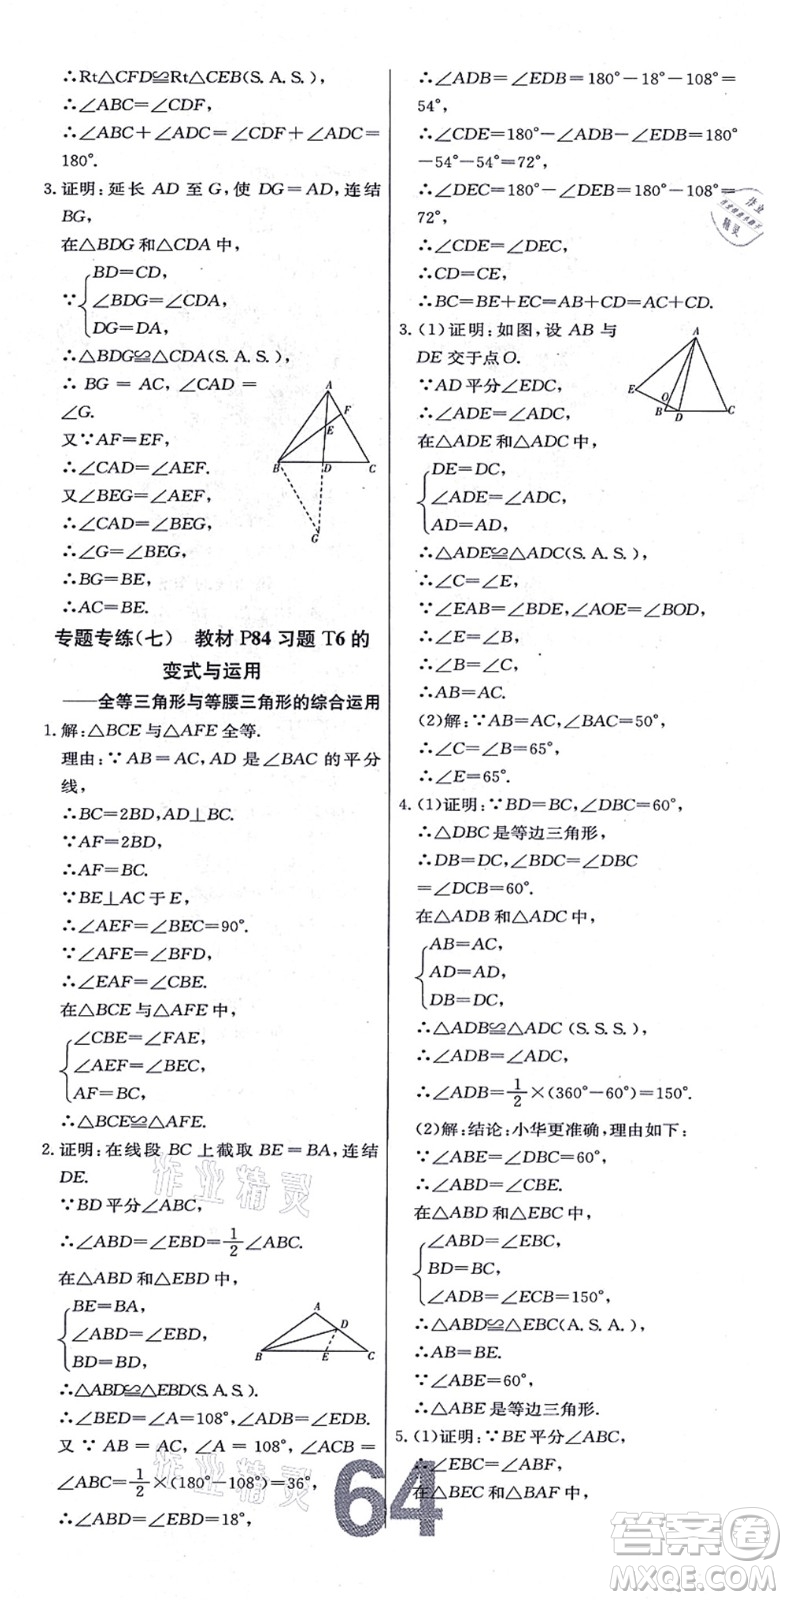 ∴Rt△CFD≌Rt△CEB(S. A. S.),
∴∠ABC=∠CDF,
∴∠ABC+∠ADC=∠CDF+∠ADC=
180°.
3. 证明:延长 AD 至 G,使 DG=AD,连结
BG,
在△BDG 和△CDA 中,
BD=CD,
∵ ∠BDG=∠CDA,
DG=DA,
∴△BDG≌△CDA(S. A. S.),
∴ BG = AC, ∠CAD =
∠G.
又∵AF=EF,
∴∠CAD=∠AEF.
又∠BEG=∠AEF,
∴∠CAD=∠BEG,
∴∠G=∠BEG,
∴BG=BE,
∴AC=BE.
A
F
E
B
D
C
G
专题专练(七) 教材 P84 习题 T6 的
变式与运用
——全等三角形与等腰三角形的综合运用
1. 解:△BCE 与△AFE 全等.
理由:∵AB=AC,AD 是∠BAC 的平分
线,
∴BC=2BD,AD⊥BC.
∵AF=2BD,
∴AF=BC.
∵BE⊥AC 于 E,
∴∠AEF=∠BEC=90°.
∵∠AFE=∠BFD,
∴∠EAF=∠CBE.
在△BCE 与△AFE 中,
∠CBE=∠FAE,
∠AEF=∠BEC,
AF=BC,
∴△BCE≌△AFE.
2. 证明:在线段 BC 上截取 BE=BA,连结
DE.
∵BD 平分∠ABC,
∴∠ABD=∠EBD=1/2∠ABC.
在△ABD 和△EBD 中,
BE=BA,
∠ABD=∠EBD,
BD=BD,
A
D
B
E
C
∴△ABD≌△EBD(S. A. S.).
∴∠BED=∠A=108°,∠ADB=∠EDB.
又 ∵ AB = AC, ∠A = 108°, ∠ACB =
∠ABC=1/2×(180°-108°)=36°,
∴∠ABD=∠EBD=18°,
∴∠ADB=∠EDB=180°-18°-108°=
54°,
∴∠CDE=180°-∠ADB-∠EDB=180°
-54°-54°=72°,
∴∠DEC=180°-∠DEB=180°-108°=
72°,
∴∠CDE=∠DEC,
∴CD=CE,
∴BC=BE+EC=AB+CD=AC+CD.
3. (1)证明:如图,设 AB 与
DE 交于点 O.
∵AD 平分∠EDC,
∴∠ADE=∠ADC,
在△ADE 和△ADC 中,
DE=DC,
∠ADE=∠ADC,
AD=AD,
A
E
O
B
D
C
∴△ADE≌△ADC(S. A. S.),
∴∠C=∠E,
又∠BAE=∠BDE,∠AOE=∠BOD,
∴∠E=∠B,
∴∠C=∠B,
∴AB=AC.
(2)解:∵AB=AC,∠BAC=50°,
∴∠C=∠B=65°,
∴∠E=65°.
4. (1)证明:∵BD=BC,∠DBC=60°,
∴△DBC 是等边三角形,
∴DB=DC,∠BDC=∠DBC
=∠DCB=60°.
在△ADB 和△ADC 中,
AB=AC,
AD=AD,
DB=DC,
∴△ADB≌△ADC (S. S. S.),
∴∠ADB=1/2×(360°-60°)=150°.
(2)解:结论:小华更准确,理由如下:
∵∠ABE=∠DBC=60°,
∴∠ABD=∠EBC.
在△ABD 和△EBC 中,
∠ABD=∠EBC,
BD=BC,
∠ADB=∠ECB=150°,
∴△ABD≌△EBC(A. S. A.),
∴AB=BE.
∵∠ABE=60°,
∴△ABE 是等边三角形.
5. (1)证明:∵BE 平分∠ABC,
∴∠EBC=∠ABF,
在△BEC 和△BAF 中,
64
作业精灵
作业精灵
作业
精灵
答案圈
MXQE.COM